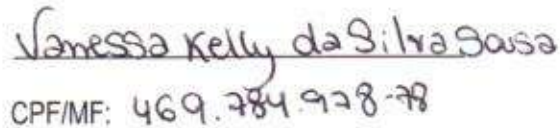 Vanessa Kelly da Silva Sousa
CPF/MF: 469.784.978-78